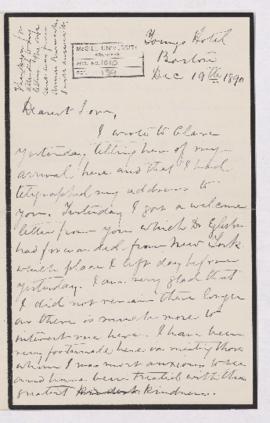 McGILL UNIVERSITY
ARCHIVES
ACC. NO. 1010
REF.
Youngs Hotel
Boston
Dec 19th 1890
Dearest Love,
I wrote to Clare
yesterday telling her of my
arrival here and that I had
telegraphed my address to
you. Yesterday I got a welcome
letter from you which Dr
had forwarded from New York
which place I left day before
yesterday. I am very glad that
I did not remain there longer
as there is much more to
interest me here. I have been
very fortunate here in meeting those
whom I was most anxious to see
and have been treated with the
greatest kindness.